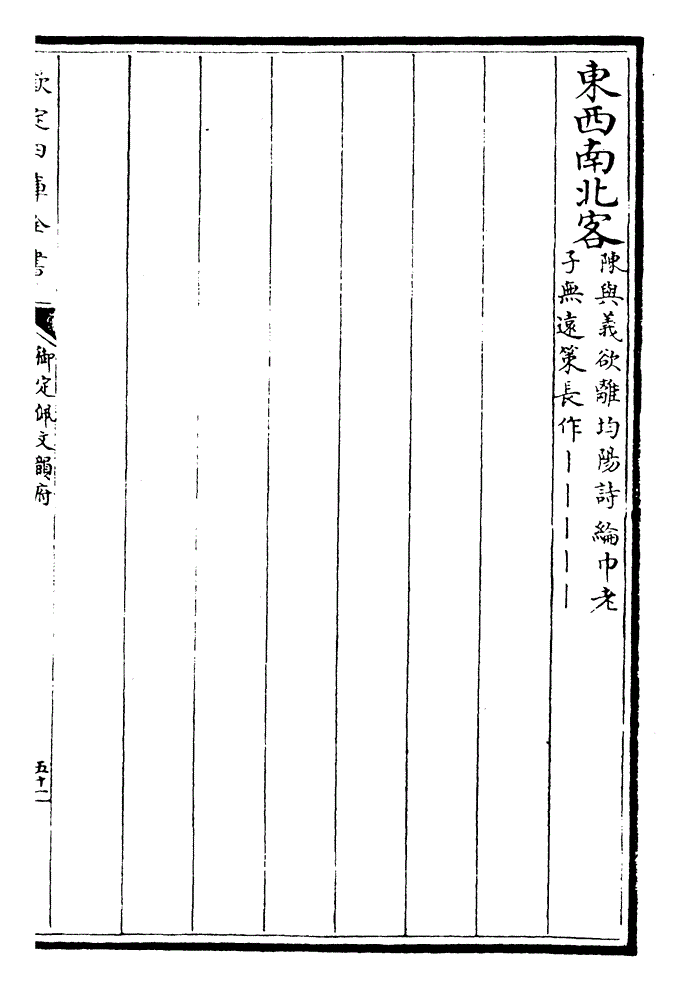 東西南北客
陳與義欲離均陽詩綸巾老
子無遠策長作丨丨丨丨丨
欽定四庫全書
御定佩文韻府
五十一